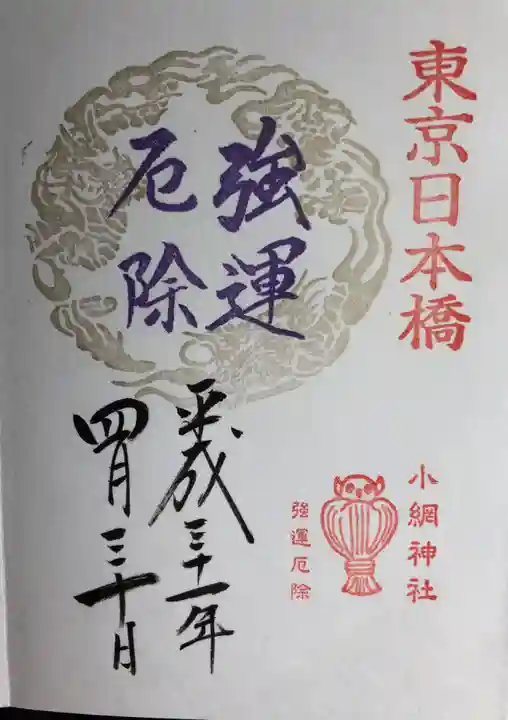 東京日本橋
小網神社
強運厄除
強運
厄除
平成三十一年
四月三十日